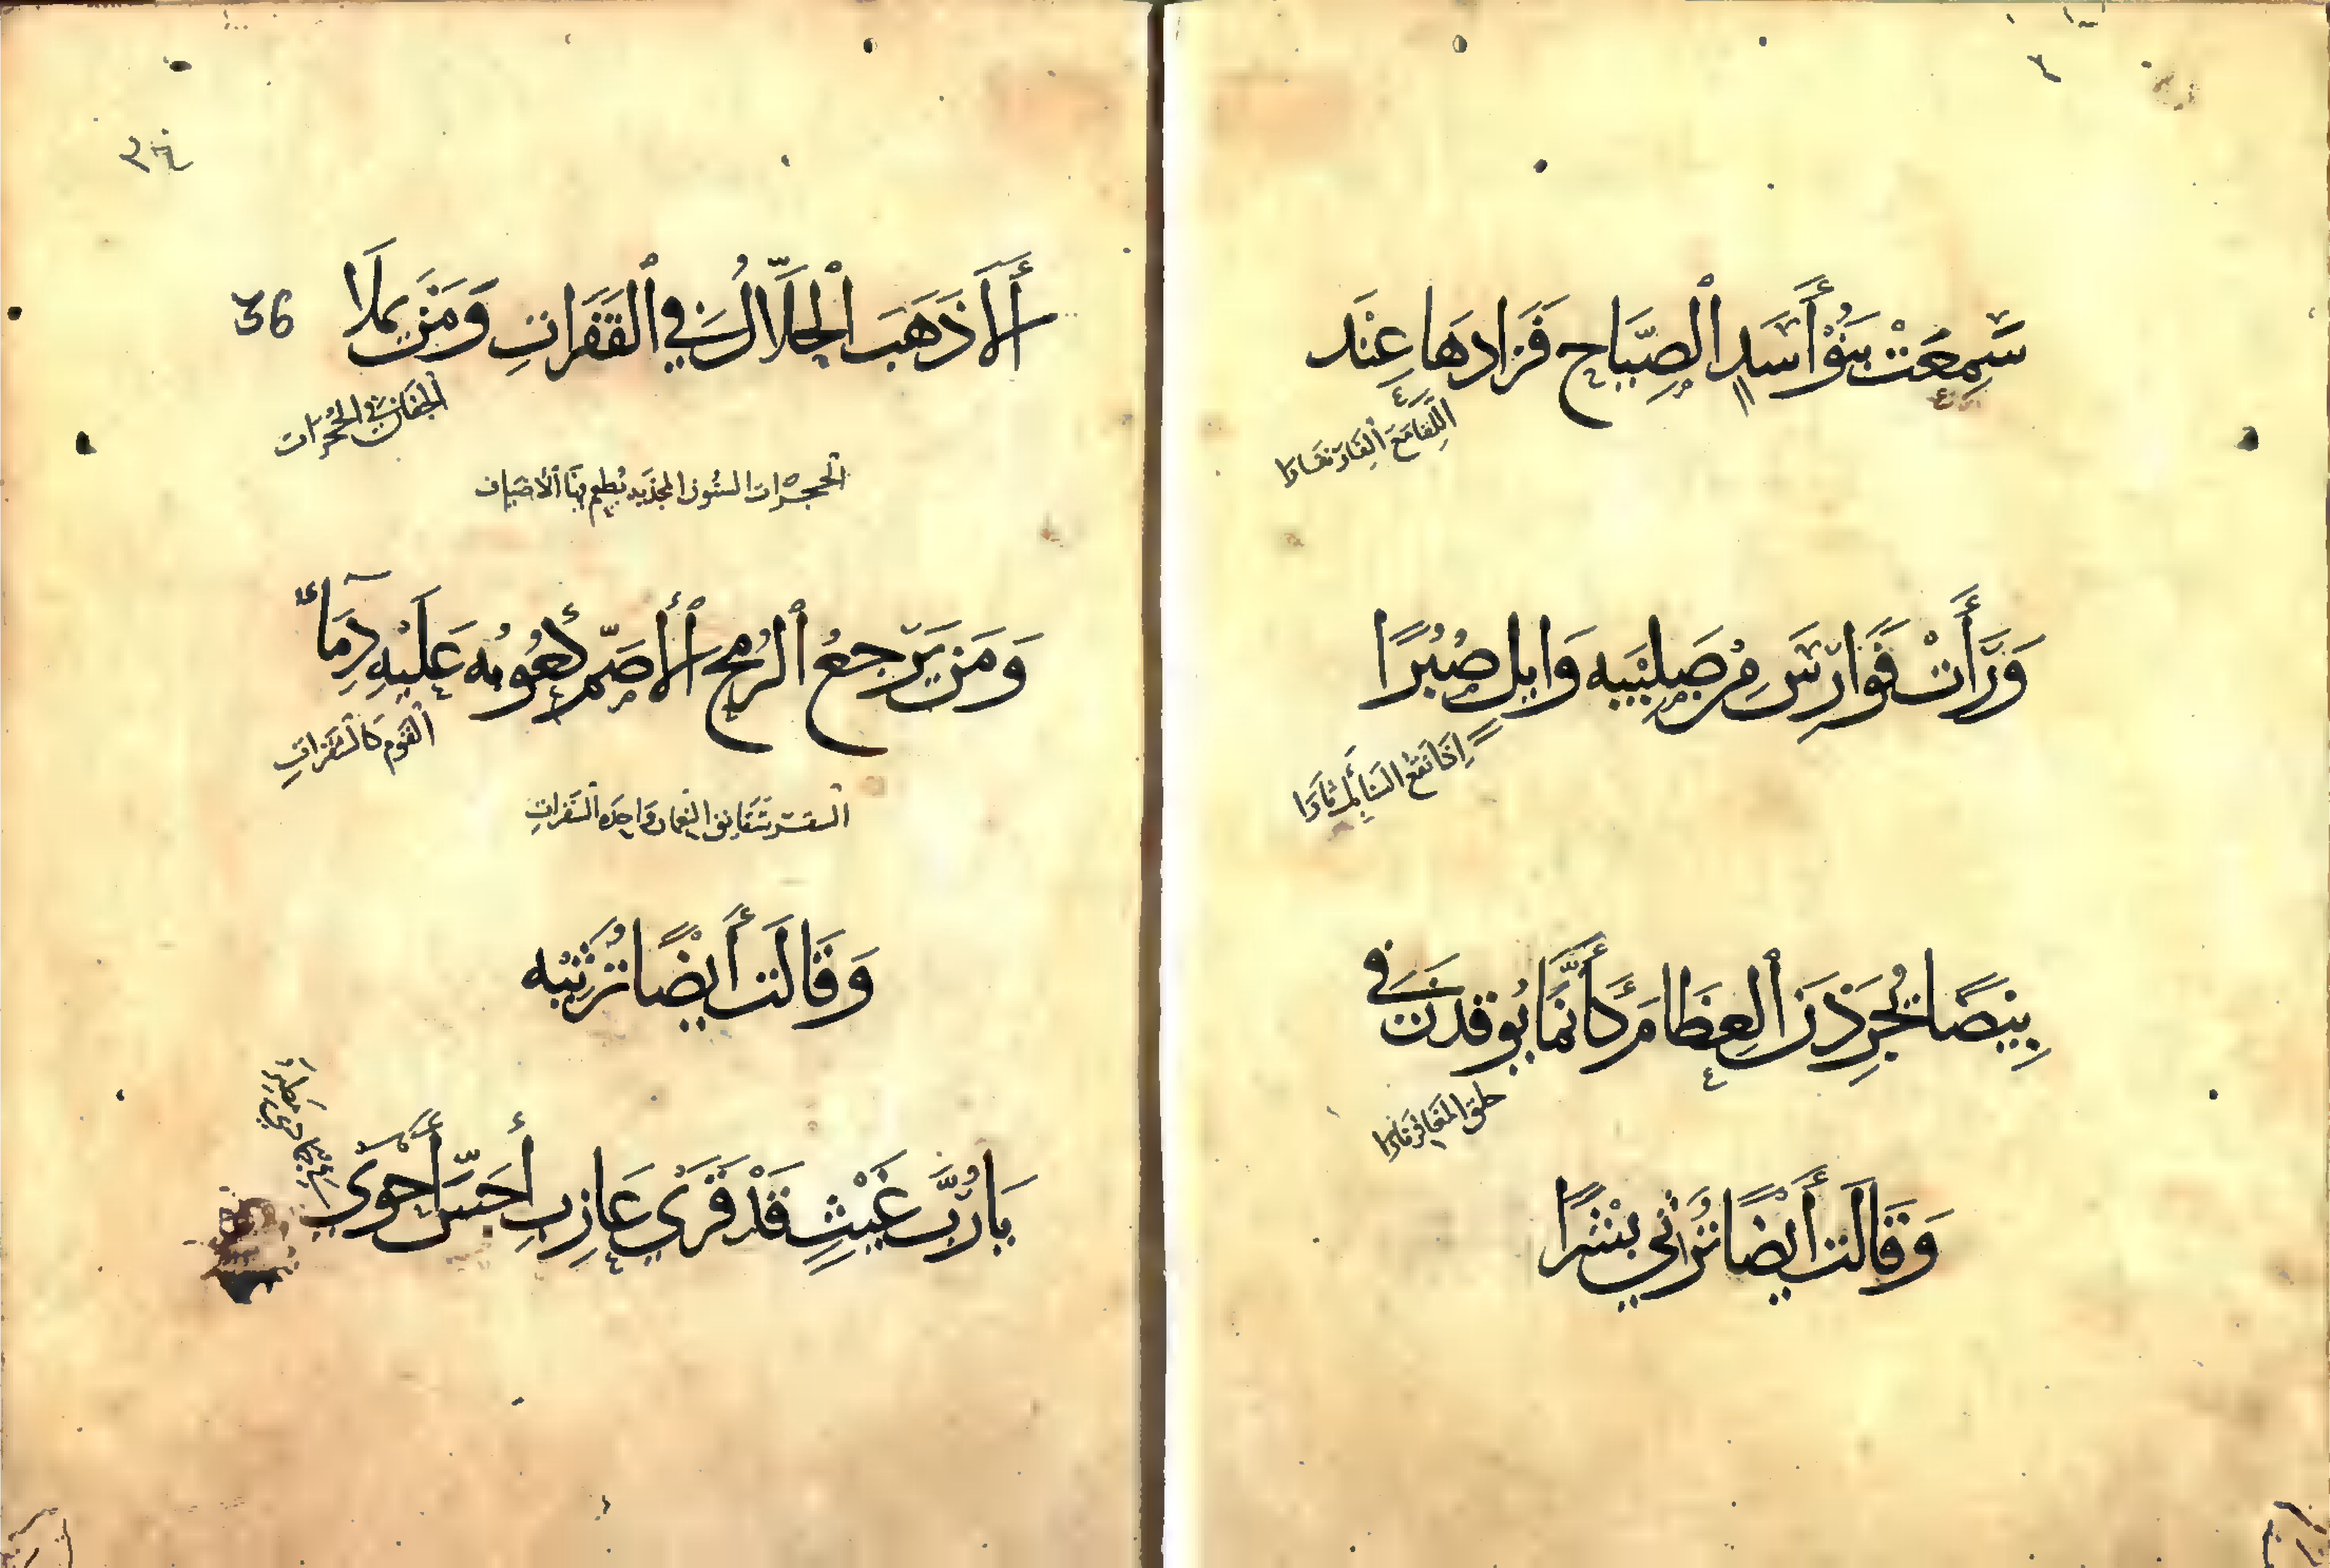 سَمِعَتْ بَنُوْ أَسَدٍ ٱلصِّبَاحَ فَزَادَهَا عِنْدَ
اللِّقَاءِ مَعَ ٱلنِّفَارِ نِفَارَا
وَرَأَتْ فَوَارِسَ مِنْ صَلِيْبَيهِ وَايِلٍ صُبُرًا
إِذَا نَقْعُ السَّنَابِكِ ثَارَا
بِيْضًا يُحَزِّزْنَ ٱلعِظَامَ كَأَنَّمَا يُوقِدْنَ فِي
حَلَقِ المَغَافِرِ نَارَا
وَقَالَت أَيْضًا تُرَثِّي بِشْرًا
36
أَلَا ذَهَبَ ٱلْحَلَّالُ فِي ٱلقَفَرَاتِ وَمَنْ يَمْلَا
ٱلجِفَانَ فِي الحُجُرَاتِ
الحجرات السنون المجدبه يطعم فيها الأضياف
وَمَن يَرْجِعُ ٱلرُّمْحَ ٱلأَصَمَّ كُعُوبُه عَلَيْهِ دِمَآءُ
ٱلقَوْمِ كَالشَّقِرَاتِ
الشقر شقايق النعمان واحده الشقرات
وَقَالَت أَيْضًا تُرَثِّيْه
يَا رُبَّ غَيْثٍ قَدْ قَرَى عَازِبٍ أَجَشَّ أَحْوَى